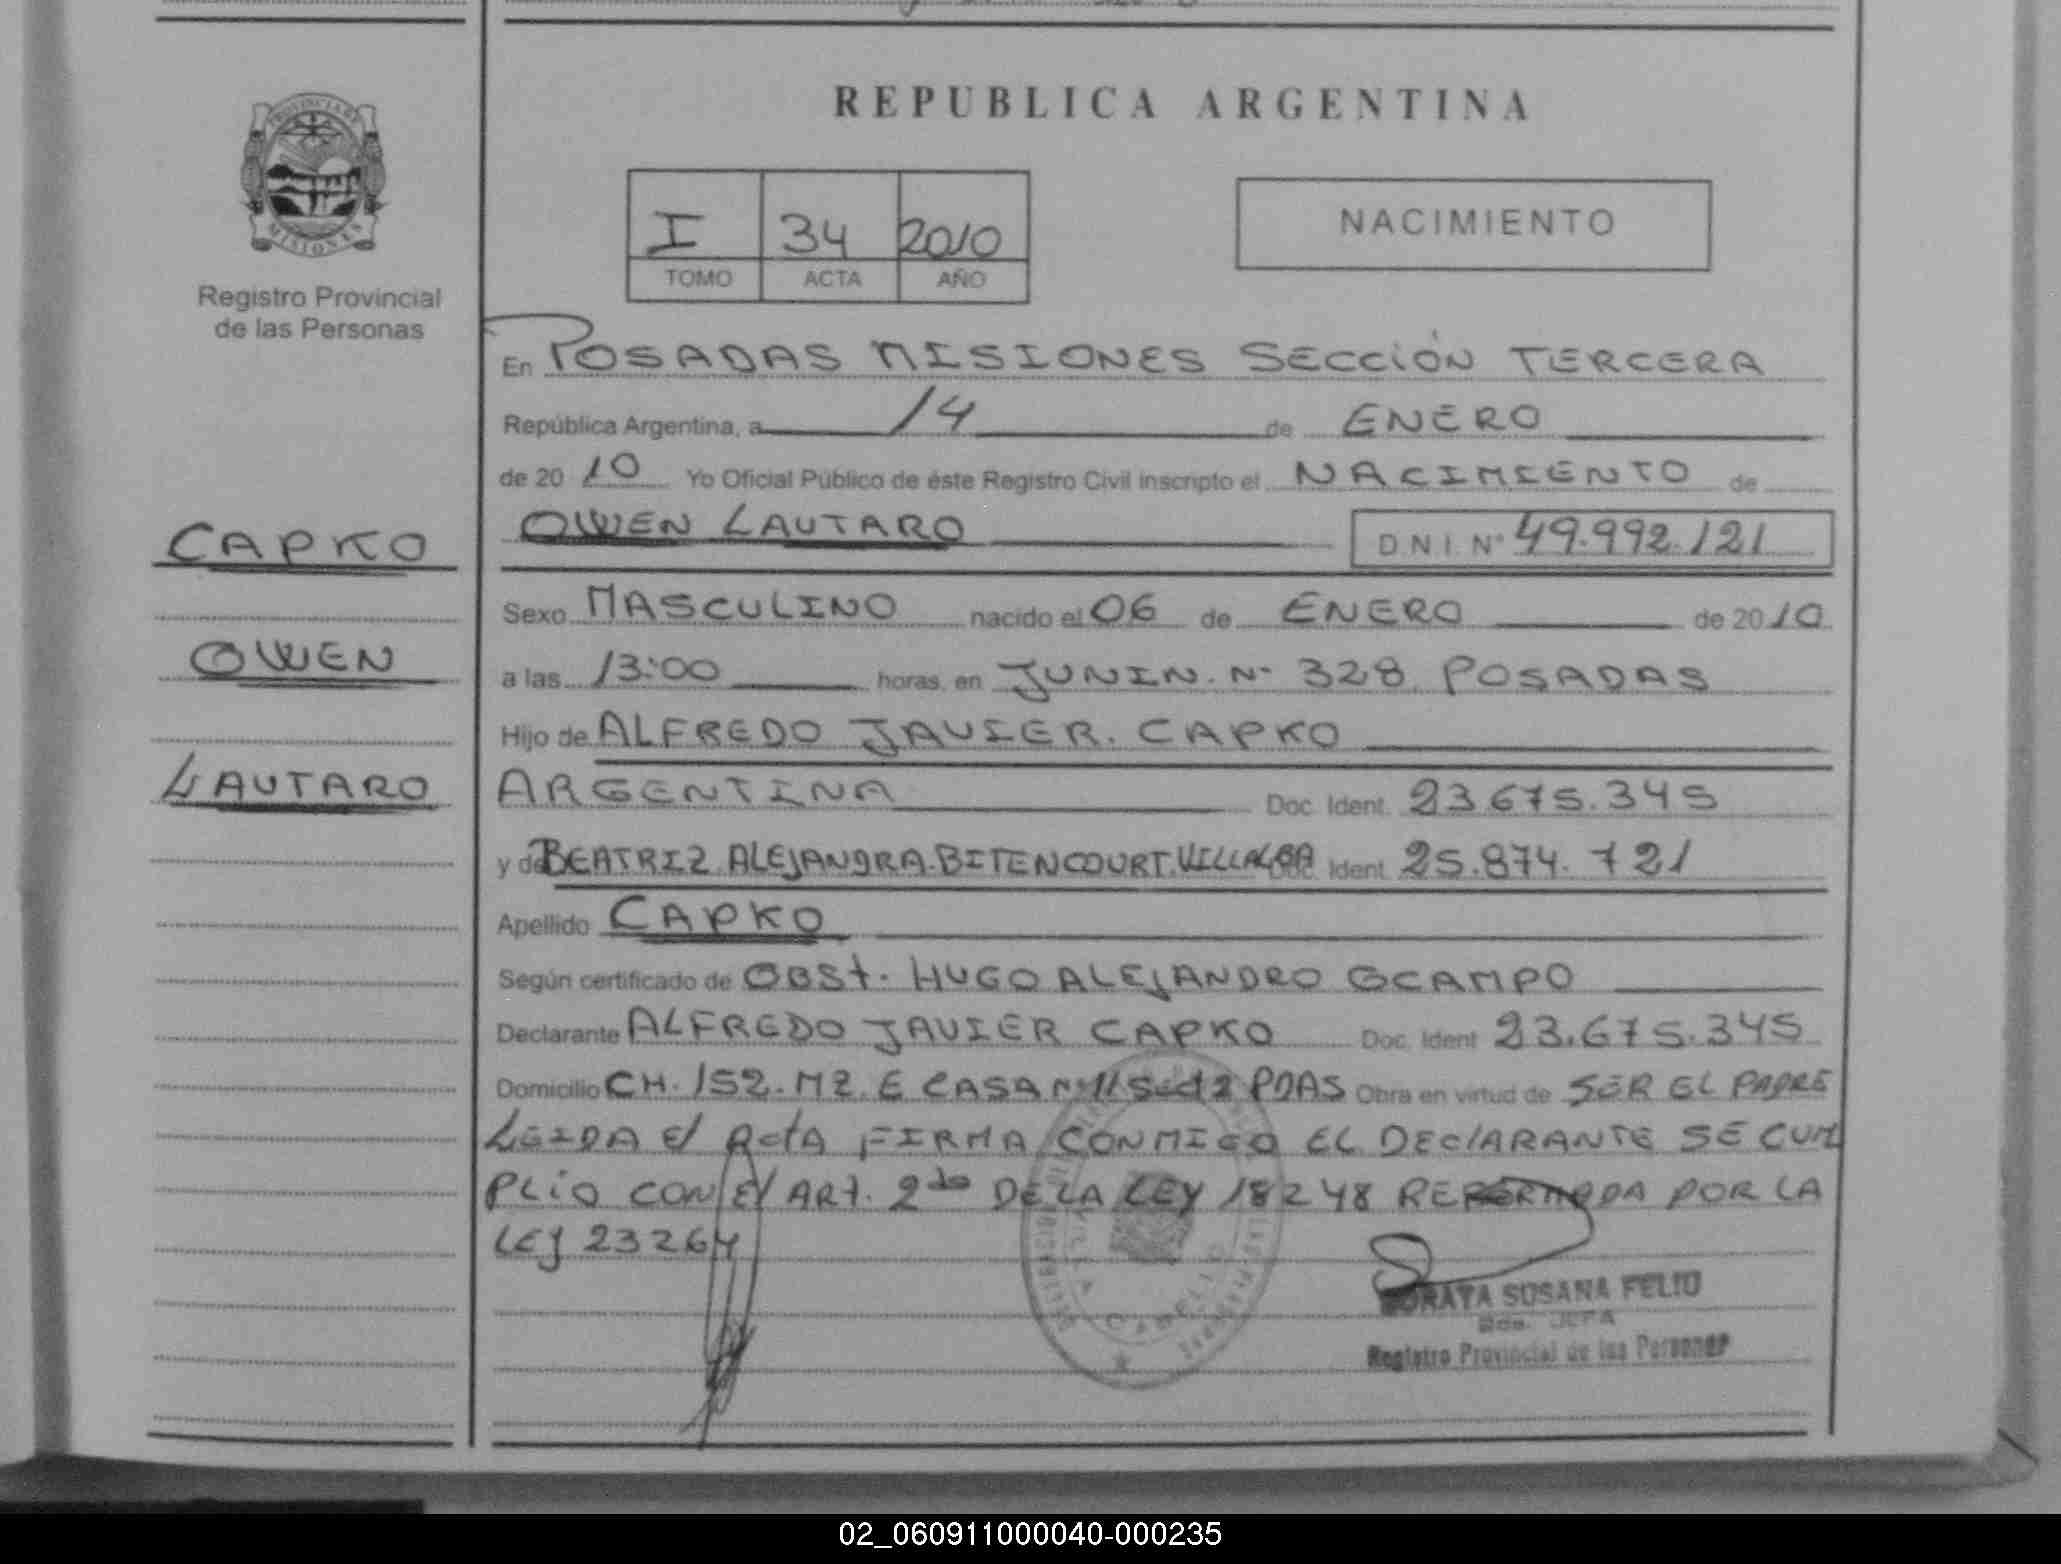 PROVINCIA DE
MISIONES
Registro Provincial
de las Personas
CAPKO
OWEN
LAUTARO
REPUBLICA ARGENTINA
I 34 2010
TOMO ACTA AÑO
NACIMIENTO
En POSADAS MISIONES SECCIÓN TERCERA
República Argentina, a 14 de ENERO
de 20 10 Yo Oficial Público de éste Registro Civil inscripto el NACIMIENTO de
OWEN LAUTARO D.N.I. N° 49.992.121
Sexo MASCULINO nacido el 06 de ENERO de 2010
a las 13:00 horas, en JUNIN. N° 328 POSADAS
Hijo de ALFREDO JAVIER. CAPKO
ARGENTINA Doc. Ident. 23.675.345
y de BEATRIZ ALEJANDRA. BITENCOURT. VILLALBA Doc. Ident. 25.874.721
Apellido CAPKO
Según certificado de OBST. HUGO ALEJANDRO OCAMPO
Declarante ALFREDO JAVIER CAPKO Doc. Ident 23.675.345
Domicilio CH. 152. MZ. E CASA PDAS Obra en virtud de SER EL PADRE
LEIDA El ActA FIRMA CONMIGO EL DEClARANTE SE CUM
PLIO CON El ARt. 2do DE LA LEY 18248 REFORMADA POR LA
LEY 23264
SORAYA SUSANA FELIU
JEFA
Registro Provincial de las Personas
02_060911000040-000235